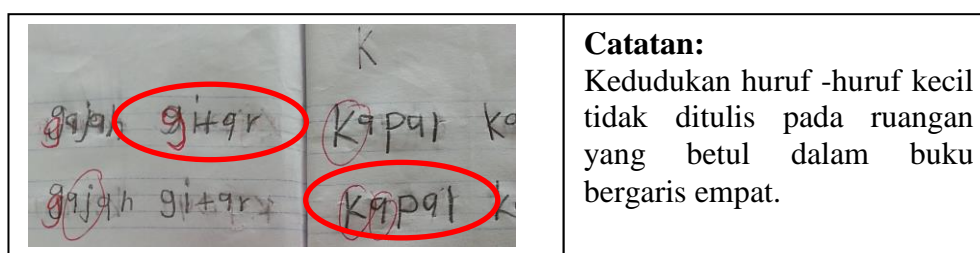 K
gajah gitar Kapal Ka
gajah gitar Kapal K
Catatan:
Kedudukan huruf -huruf kecil
tidak ditulis pada ruangan
yang betul dalam buku
bergaris empat.